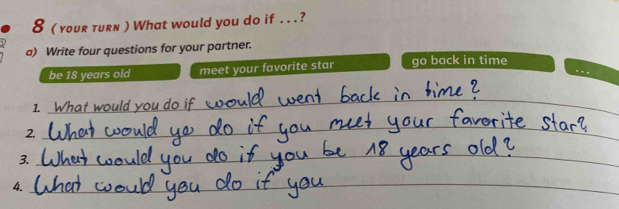 8 ( YOUR TURN ) What would you do if ...?
a) Write four questions for your partner.
be 18 years old meet your favorite star go back in time ...
1. What would you do if would went back in time?
2. What would yo do if you meet your favorite star?
3. What would you do if you be 18 years old?
4. What would you do if you